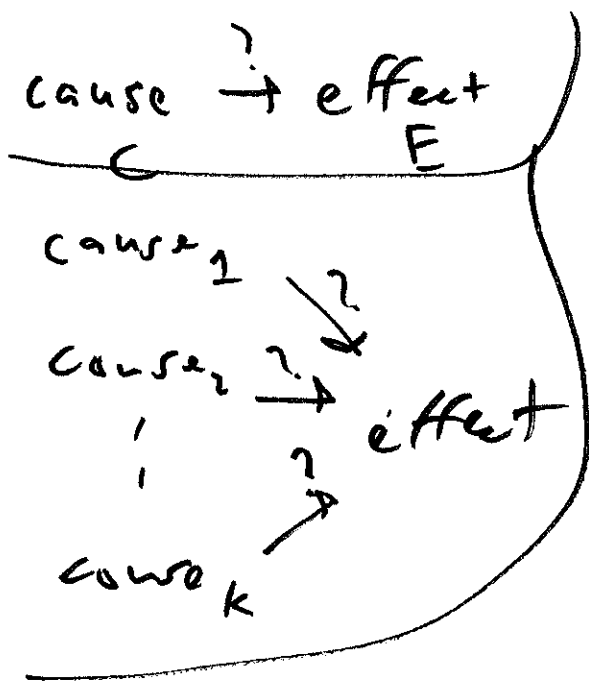 ?
cause → effect
C E
cause₁ ?
cause₂ ? → effect
?
cause k